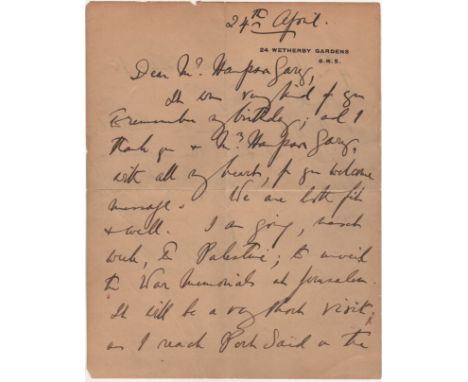 24th April.
24 WETHERBY GARDENS
S.W.5.
Dear Mr. Hampson Gary,
It was very kind of you
to remember my birthday; and I
thank you & Mrs. Hampson Gary,
with all my heart, for your welcome
message. We are both fit
& well. I am going, next
week, to Palestine; to unveil
the War Memorials at Jerusalem.
It will be a very short visit,
as I reach Port Said on the